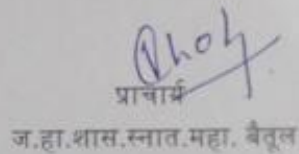 प्राचार्य
ज.हा.शास.स्नात.महा. बैतूल